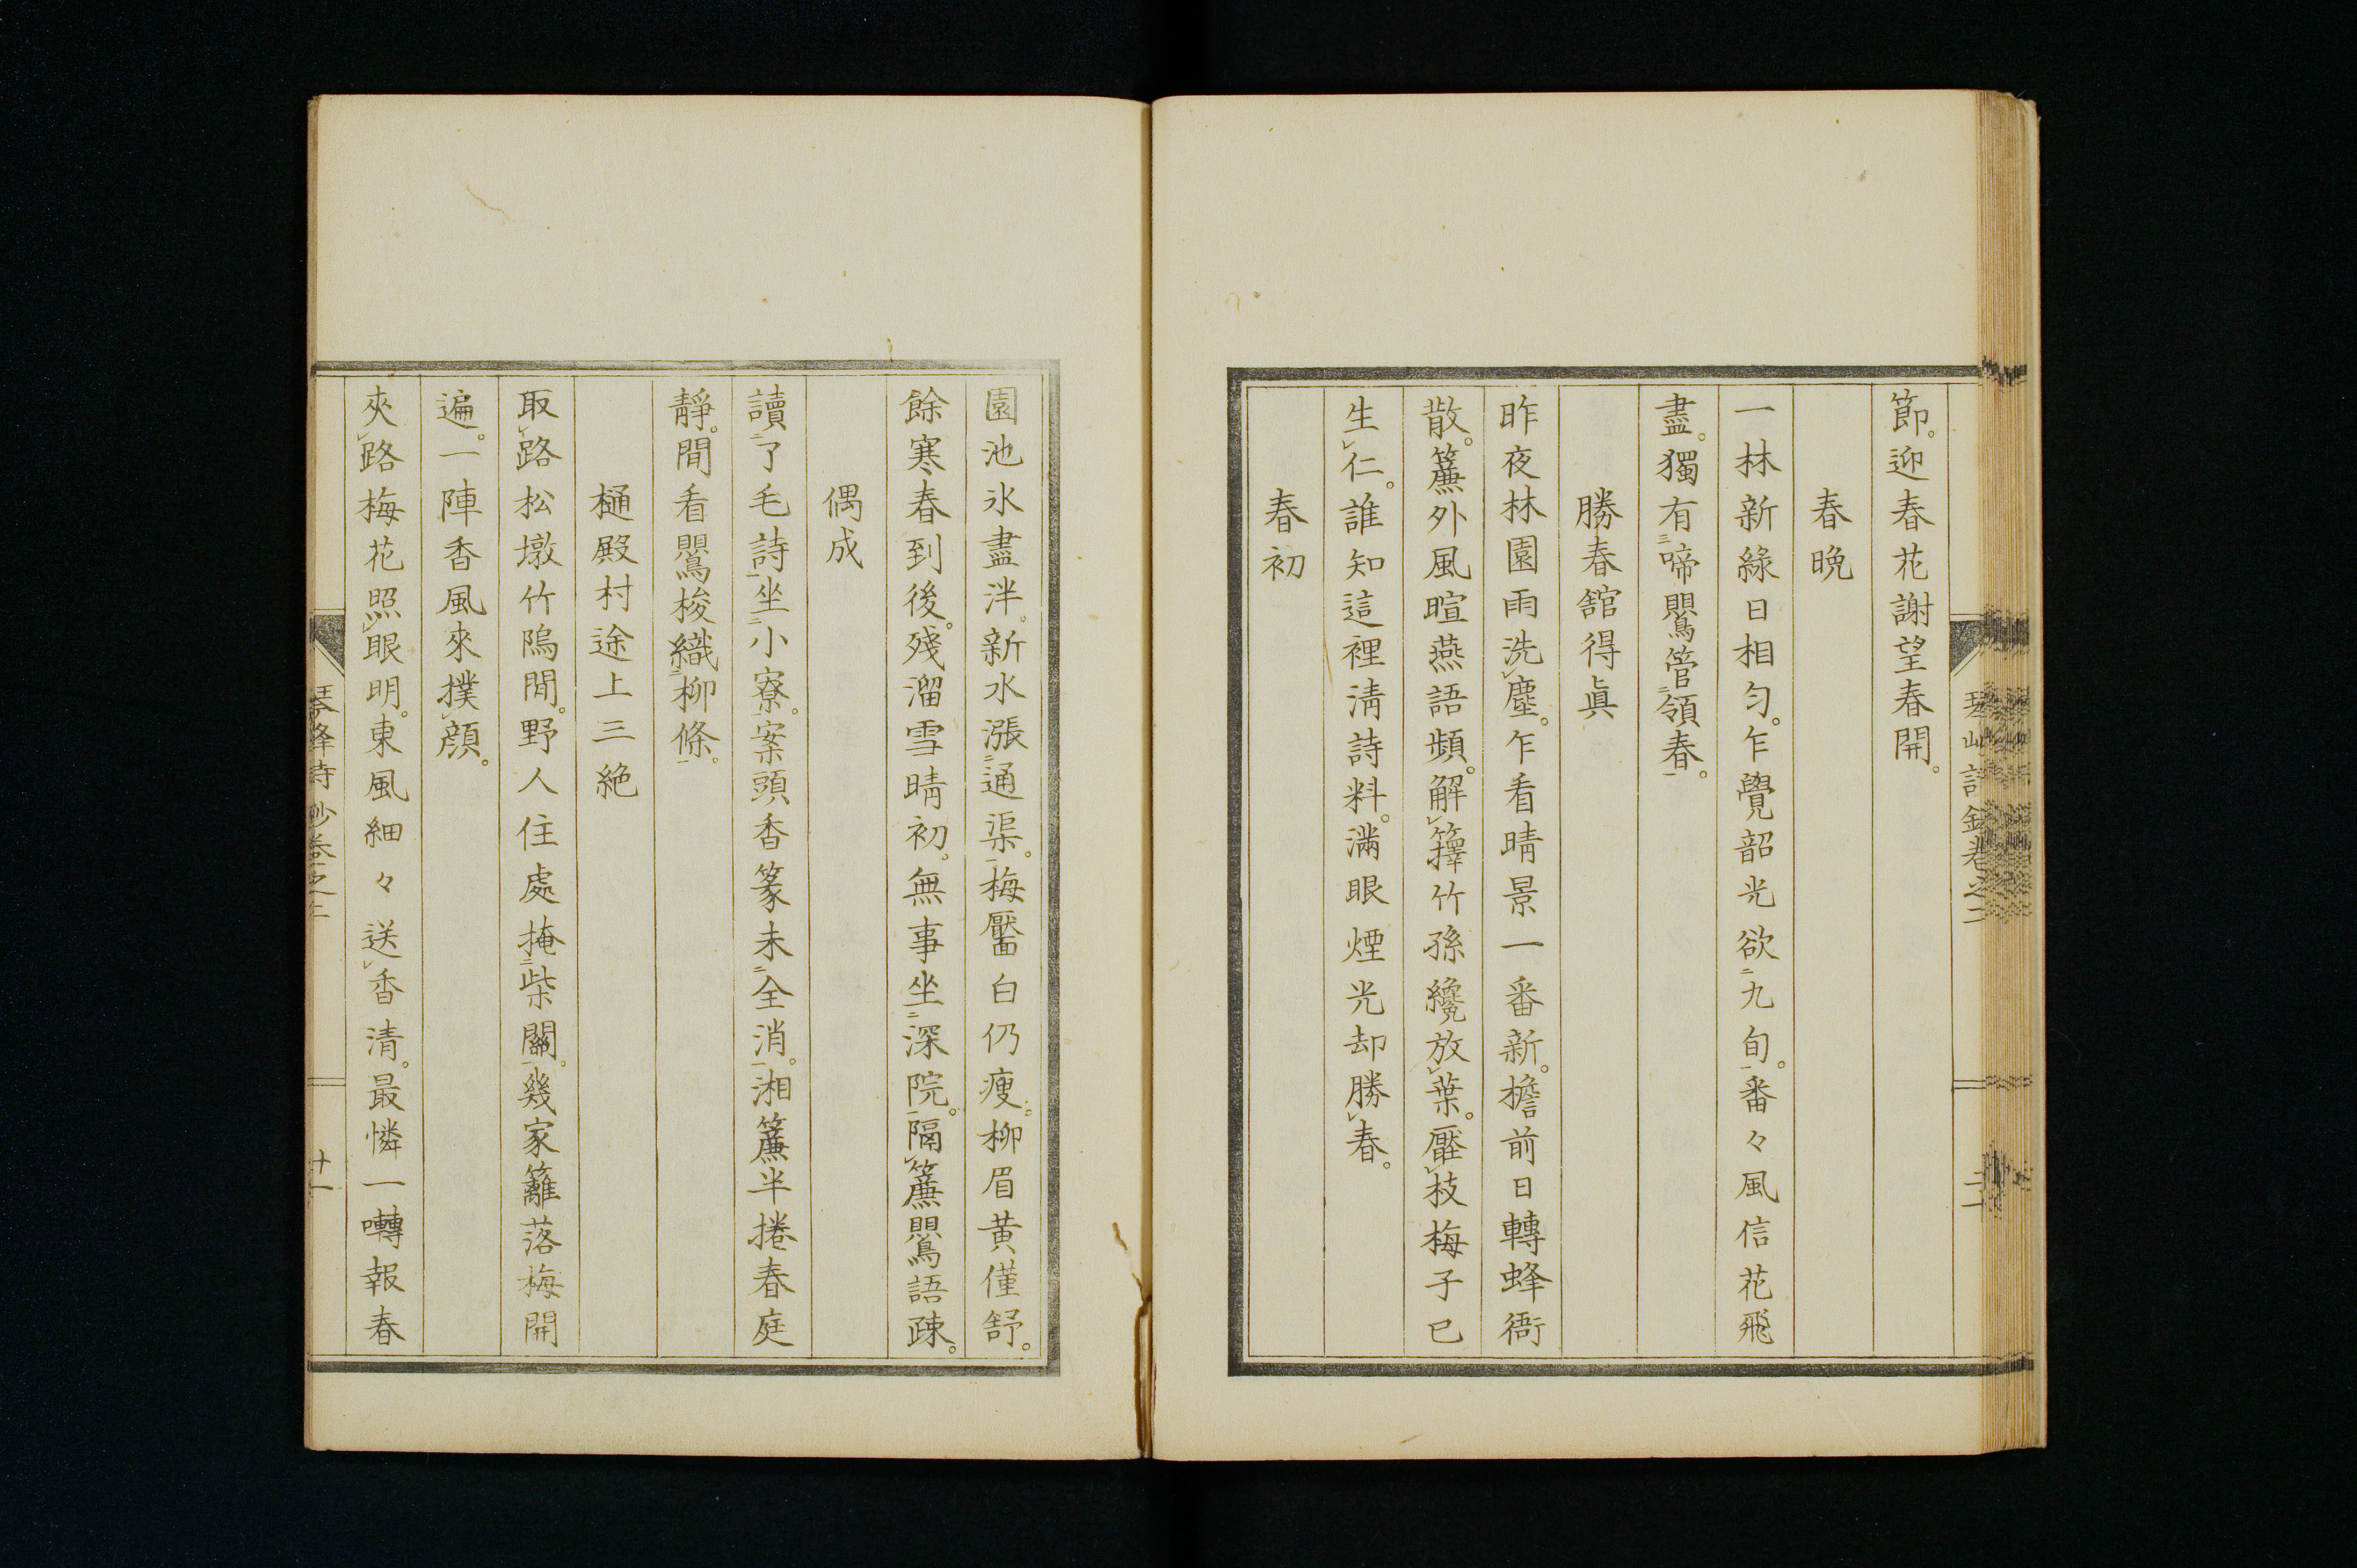 節。迎春花謝望春開。
春晩
一林新綠日相匀。乍覺韶光欲二九旬一。番々風信花飛
盡。獨有三啼鸎管二領春一。
勝春舘得眞
昨夜林園雨洗レ塵。乍看晴景一番新。檐前日轉蜂衙
散。簾外風暄燕語頻。解レ籜竹孫纔放レ葉。壓レ枝梅子已
生レ仁。誰知這裡淸詩料。滿眼煙光却勝レ春。
春初
園池氷盡泮。新水漲二通渠一。梅靨白仍瘦。柳眉黃僅舒。
餘寒春到後。殘溜雪晴初。無事坐二深院一。隔レ簾鸎語疎。
偶成
讀二了毛詩一坐二小寮一。案頭香篆未二全消一。湘簾半捲春庭
靜。閒看鸎梭織二柳條一。
樋殿村途上三絶
取レ路松墩竹隖閒。野人住處掩二柴關一。幾家籬落梅開
遍。一陣香風來撲レ顔。
夾レ路梅花照レ眼明。東風細々送レ香清。最憐一囀報春
琴峰詩鈔卷之二
十一